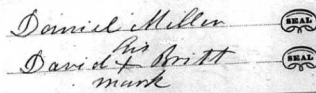 Daniel Miller SEAL
his
David + Britt SEAL
mark